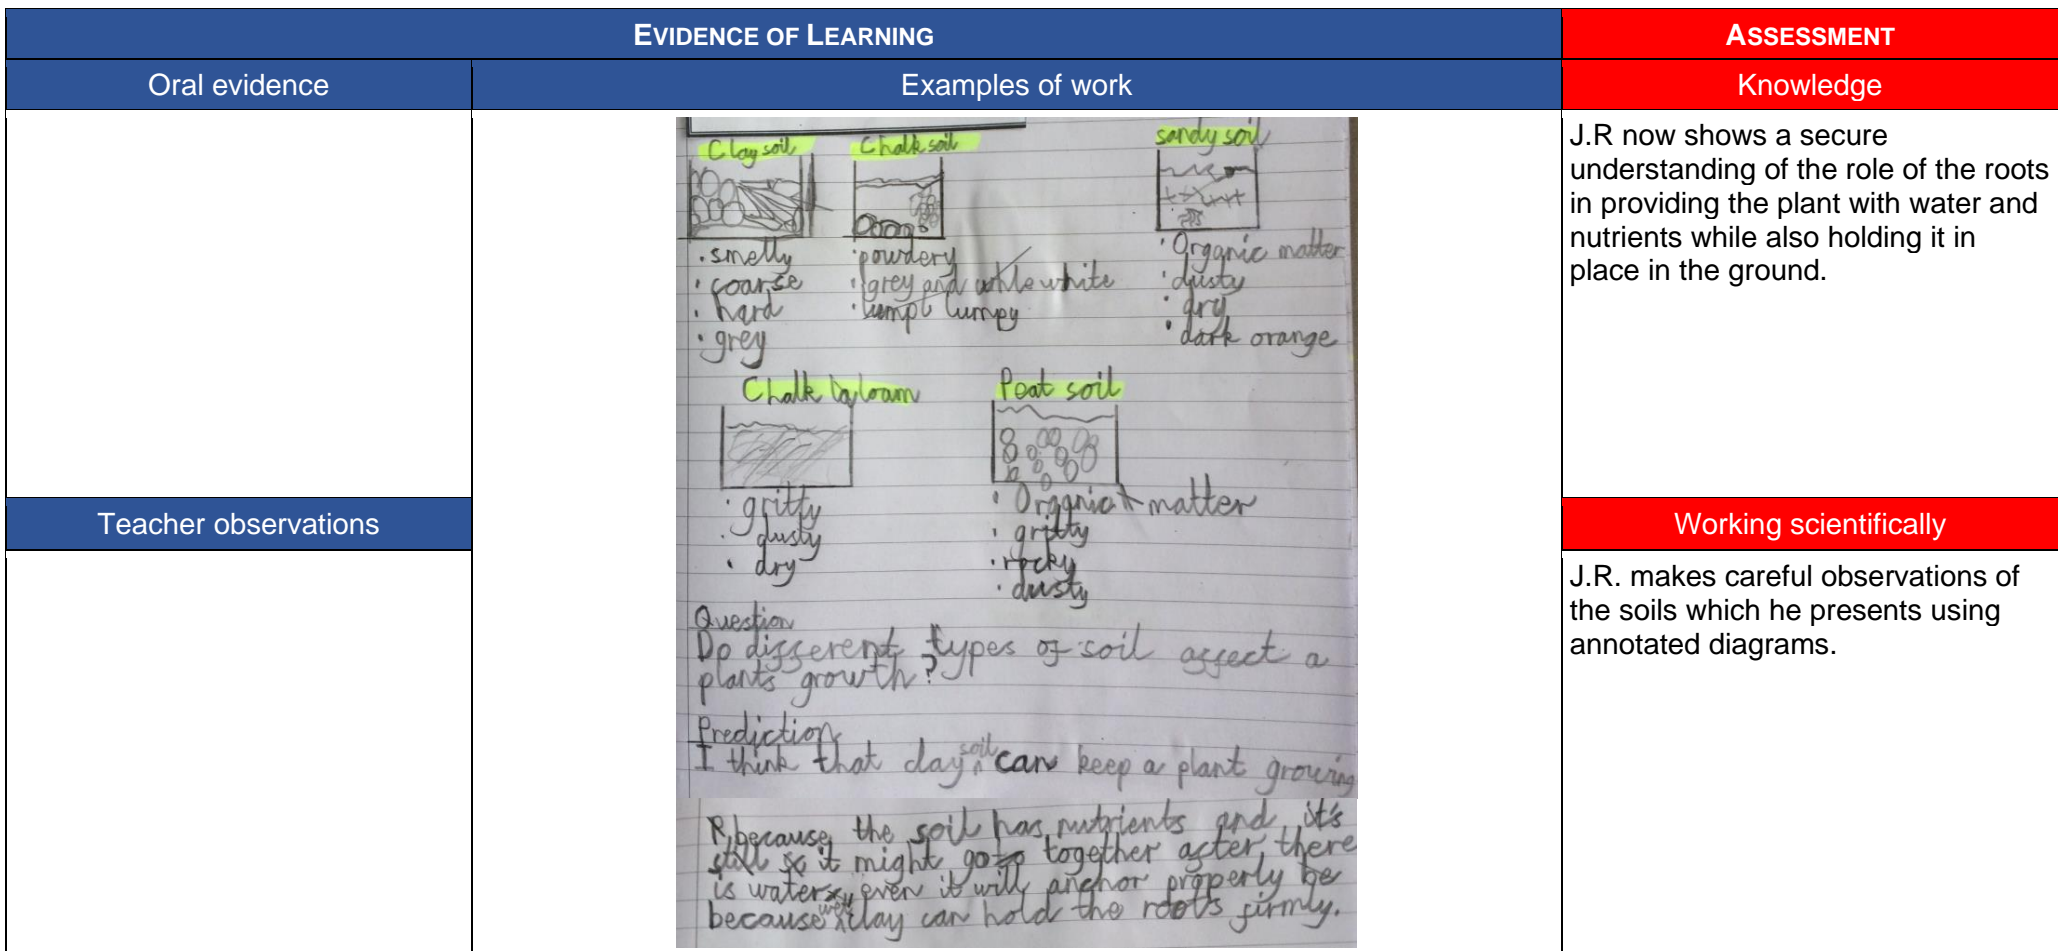 EVIDENCE OF LEARNING
ASSESSMENT
Oral evidence
Examples of work
Knowledge
Clay soil
Chalk soil
sandy soil
· smelly
· coarse
· hard
· grey
· powdery
· grey and white
· lumpy
· Organic matter
· dusty
· dry
· dark orange
Chalk loam
Peat soil
· gritty
· dusty
· dry
· Organic matter
· gritty
· rocky
· dusty
Question
Do different types of soil affect a
plants growth?
Prediction
I think that clay soil can keep a plant growing
because the soil has nutrients and it's
still so it might go together after there
is water even it will anchor properly be
because wet clay can hold the roots firmly.
J.R now shows a secure
understanding of the role of the roots
in providing the plant with water and
nutrients while also holding it in
place in the ground.
Teacher observations
Working scientifically
J.R. makes careful observations of
the soils which he presents using
annotated diagrams.